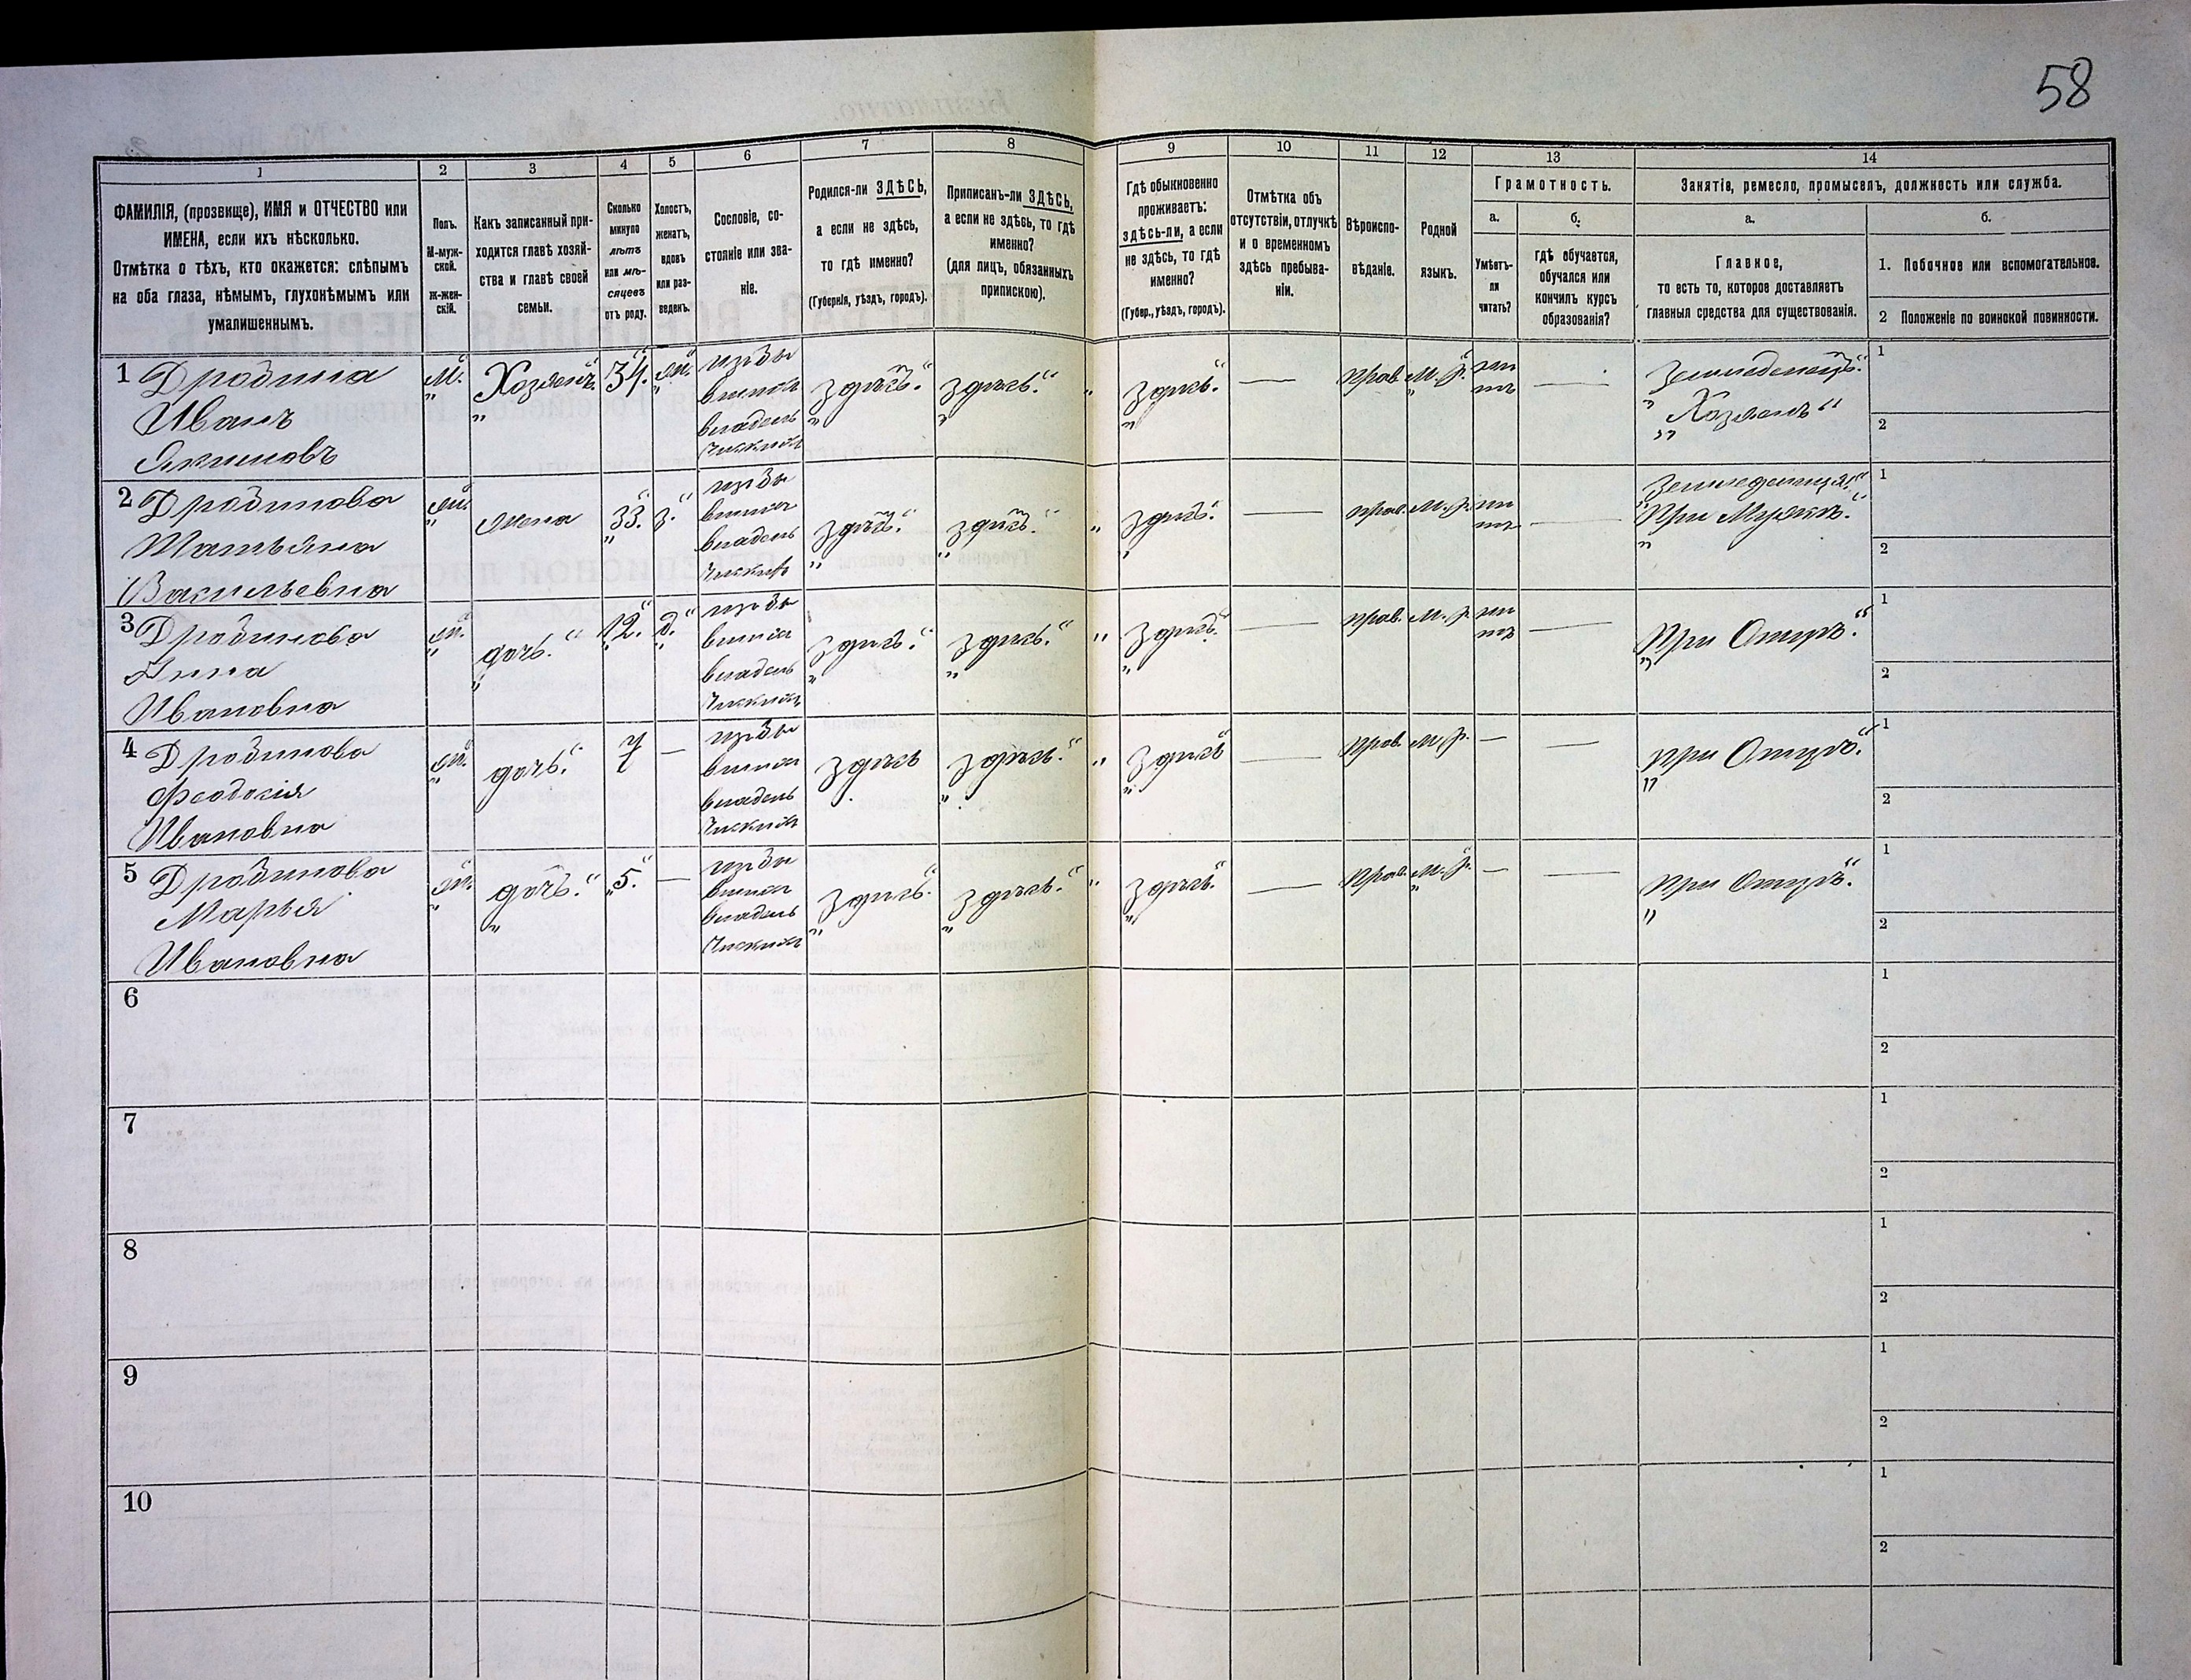 58
1 2 3 4 5 6 7 8 9 10 11 12 13 14
ФАМИЛІЯ, (прозвище), ИМЯ и ОТЧЕСТВО или
ИМЕНА, если ихъ нѣсколько.
Отмѣтка о тѣхъ, кто окажется: слѣпымъ
на оба глаза, нѣмымъ, глухонѣмымъ или
умалишеннымъ.
Полъ.
М-муж-
ской.
Ж-жен-
скій.
Какъ записанный при-
ходится главѣ хозяй-
ства и главѣ своей
семьи.
Сколько
минуло
лѣтъ
или мѣ-
сяцевъ
отъ роду.
Холостъ,
женатъ,
вдовъ
или раз-
веденъ.
Сословіе, со-
стояніе или зва-
ніе.
Родился-ли ЗДѢСЬ,
а если не здѣсь,
то гдѣ именно?
(Губернія, уѣздъ, городъ).
Приписанъ-ли ЗДѢСЬ,
а если не здѣсь, то гдѣ
именно?
(для лицъ, обязанныхъ
припискою).
Гдѣ обыкновенно
проживаетъ:
здѣсь-ли, а если
не здѣсь, то гдѣ
именно?
(Губер., уѣздъ, городъ).
Отмѣтка объ
отсутствіи, отлучкѣ
и о временномъ
здѣсь пребыва-
ніи.
Вѣроиспо-
вѣданіе.
Родной
языкъ.
Грамотность.
а.
Умѣетъ-
ли
читать?
б.
гдѣ обучается,
обучался или
кончилъ курсъ
образованія?
Занятіе, ремесло, промыселъ, должность или служба.
а.
Главное,
то есть то, которое доставляетъ
главныя средства для существованія.
б.
1. Побочное или вспомогательное.
2 Положеніе по воинской повинности.
1 Дробина
Иванъ
Якимовъ
М. Хозяинъ 34. ж.
здѣсь. здѣсь. здѣсь. — прав. М. р. — Земледѣлецъ.
Хозяинъ
1
2
2 Дробинова
Татьяна
Васильевна
ж. жена 33. з.
здѣсь. здѣсь. здѣсь. — прав. М. р. —
При Мужѣ.
1
2
3 Дробинова
Анна
Ивановна
ж. дочь. 12. д.
здѣсь. здѣсь. здѣсь. — прав. М. р. — При Отцѣ.
1
2
4 Дробинова
Феодосія
Ивановна
ж. дочь. 7 —
здѣсь здѣсь. здѣсь — прав. М. р. — — При Отцѣ.
1
2
5 Дробинова
Марья
Ивановна
ж. дочь. 5. —
здѣсь. здѣсь. здѣсь. — прав. М. р. — — При Отцѣ.
1
2
6
1
2
7
1
2
8
1
2
9
1
2
10
1
2